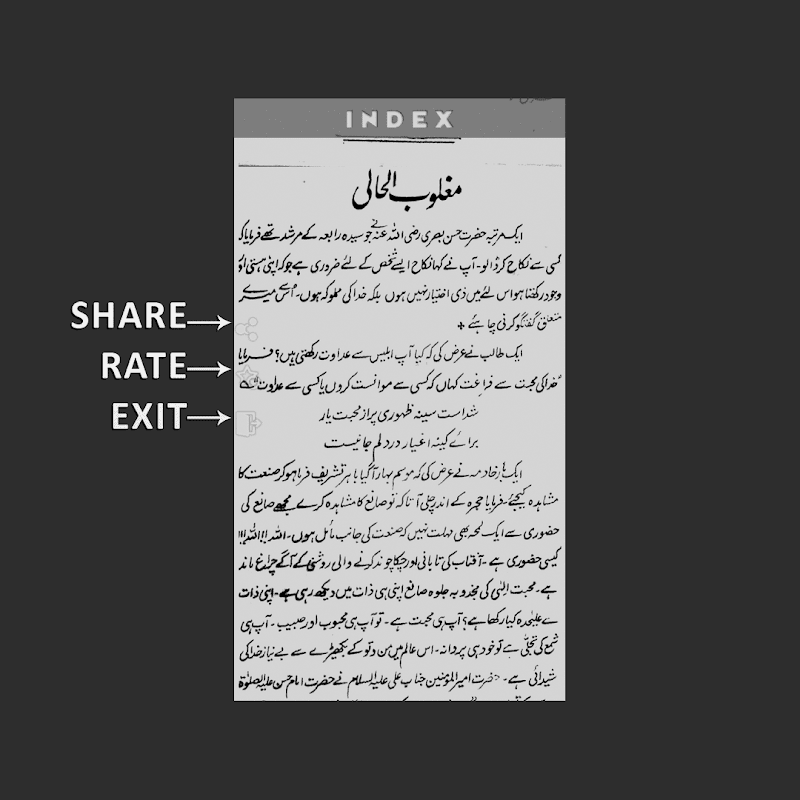 INDEX
مغلوب الحالی
ایک مرتبہ حضرت حسن بصری رضی اللہ عنہ نے جو سیدہ رابعہ کے مرشد تھے فرمایا کہ
کسی سے نکاح کر ڈالو۔ آپ نے کہا نکاح ایسے شخص کے لئے ضروری ہے جو کہ اپنی ہستی اور
وجود رکھتا ہو اس لئے میں ذی اختیار نہیں ہوں بلکہ خدا کی مملوکہ ہوں۔ اُس میرے
متعلق گفتگو کرنی چاہئے
SHARE
ایک طالب نے عرض کی کہ کیا آپ ابلیس سے عداوت رکھتی ہیں؟ فرمایا
RATE
خدا کی محبت سے فراغت کہاں کہ کسی سے موانست کروں یا کسی سے عداوت
EXIT
شداست سینہ ظہوری پر از محبت یار
برائے کینہ اغیار در دلم جا نیست
ایک بار خادمہ نے عرض کی کہ موسم بہار آگیا باہر تشریف فرما ہو کر صنعت کا
مشاہدہ کیجئے۔ فرمایا حجرہ کے اندر چلی آ تا کہ تو صانع کا مشاہدہ کرے مجھے صانع کی
حضوری سے ایک لمحہ بھی مہلت نہیں کہ صنعت کی جانب مائل ہوں۔ اللہ !! اللہ !!!
کیسی حضوری ہے۔ آفتاب کی تابانی اور چکا چوند کرنے والی روشنی کے آگے چراغ ماند
ہے۔ محبت الٰہی کی مجذوبہ جلوہ صانع اپنی ہی ذات میں دیکھ رہی ہے۔ اپنی ذات
سے علیحدہ کیا رکھا ہے؟ آپ ہی محبت ہے۔ تو آپ ہی محبوب اور حبیب۔ آپ ہی
شمع کی تجلّی ہے تو خود ہی پروانہ۔ اس عالم میں من و تو کے بکھیڑے سے بے نیاز خدا کی
شیدائی ہے۔ حضرت امیر المؤمنین جناب علی علیہ السلام نے حضرت امام حسن علیہ الصلوٰۃ